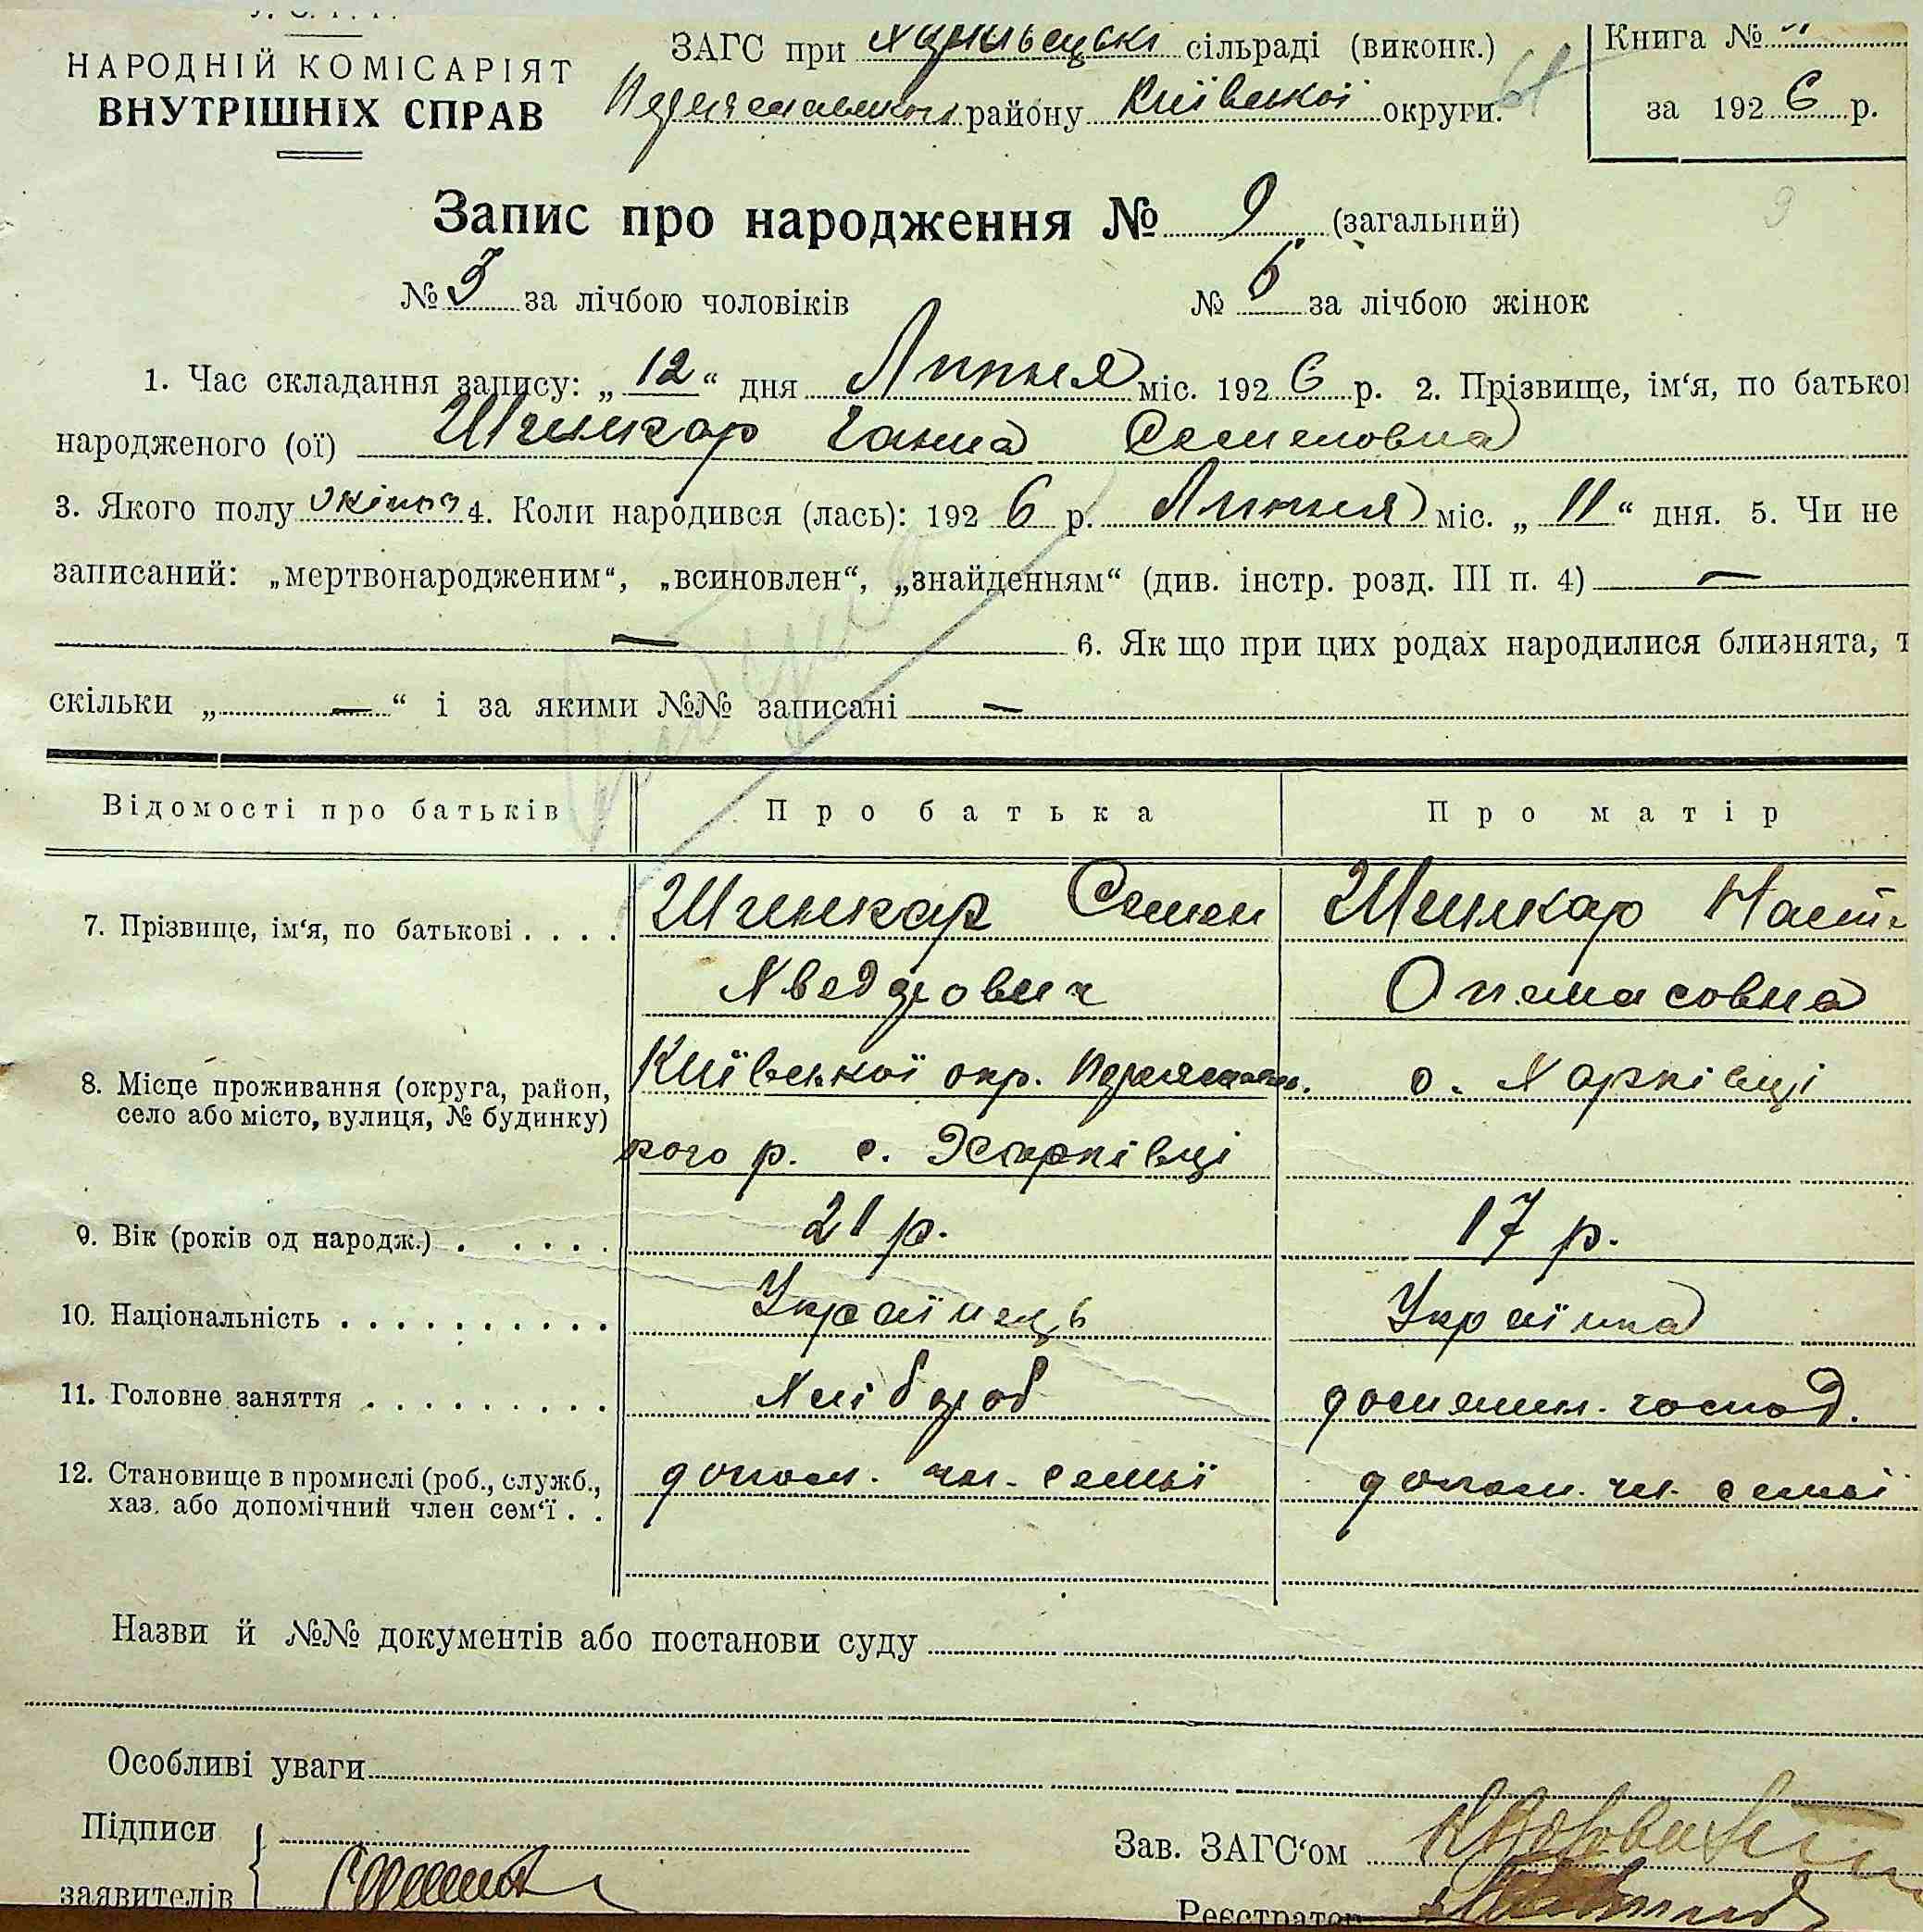 НАРОДНІЙ КОМІСАРІЯТ
ВНУТРІШНІХ СПРАВ
ЗАГС при сільраді (виконк.)
району Київської округи.
Книга №
за 1926 р.
Запис про народження № 9 (загальний)
№ 3 за лічбою чоловіків № 6 за лічбою жінок
1. Час складання запису: „12“ дня Липня міс. 1926 р. 2. Прізвище, ім‘я, по батько
народженого (ої) Шинкар Ганна Семеновна
3. Якого полу жіноч 4. Коли народився (лась): 1926 р. Липня міс. „11“ дня. 5. Чи не
записаний: „мертвонародженим“, „всиновлен“, „знайденням“ (див. інстр. розд. III п. 4) —
— 6. Як що при цих родах народилися близнята, т
скільки „—“ і за якими №№ записані —
Відомості про батьків Про батька Про матір
7. Прізвище, ім‘я, по батькові . . . . Шинкар Семен Шинкар Наст
Хведорович Опанасовна
8. Місце проживання (округа, район, село або місто, вулиця, № будинку) Київської окр. Переяславс. с. Харківці
кого р. с. Харківці
9. Вік (років од народж.) . . . . . 21 р. 17 р.
10. Національність . . . . . . . . . . Українець Українка
11. Головне заняття . . . . . . . . . Хлібороб домашн. господ.
12. Становище в промислі (роб., служб., хаз. або допомічний член сем‘ї . . допом. чл. семьї допом. чл. семьї
Назви й №№ документів або постанови суду
Особливі уваги
Підписи
заявителів
Зав. ЗАГС‘ом
Реєстратор